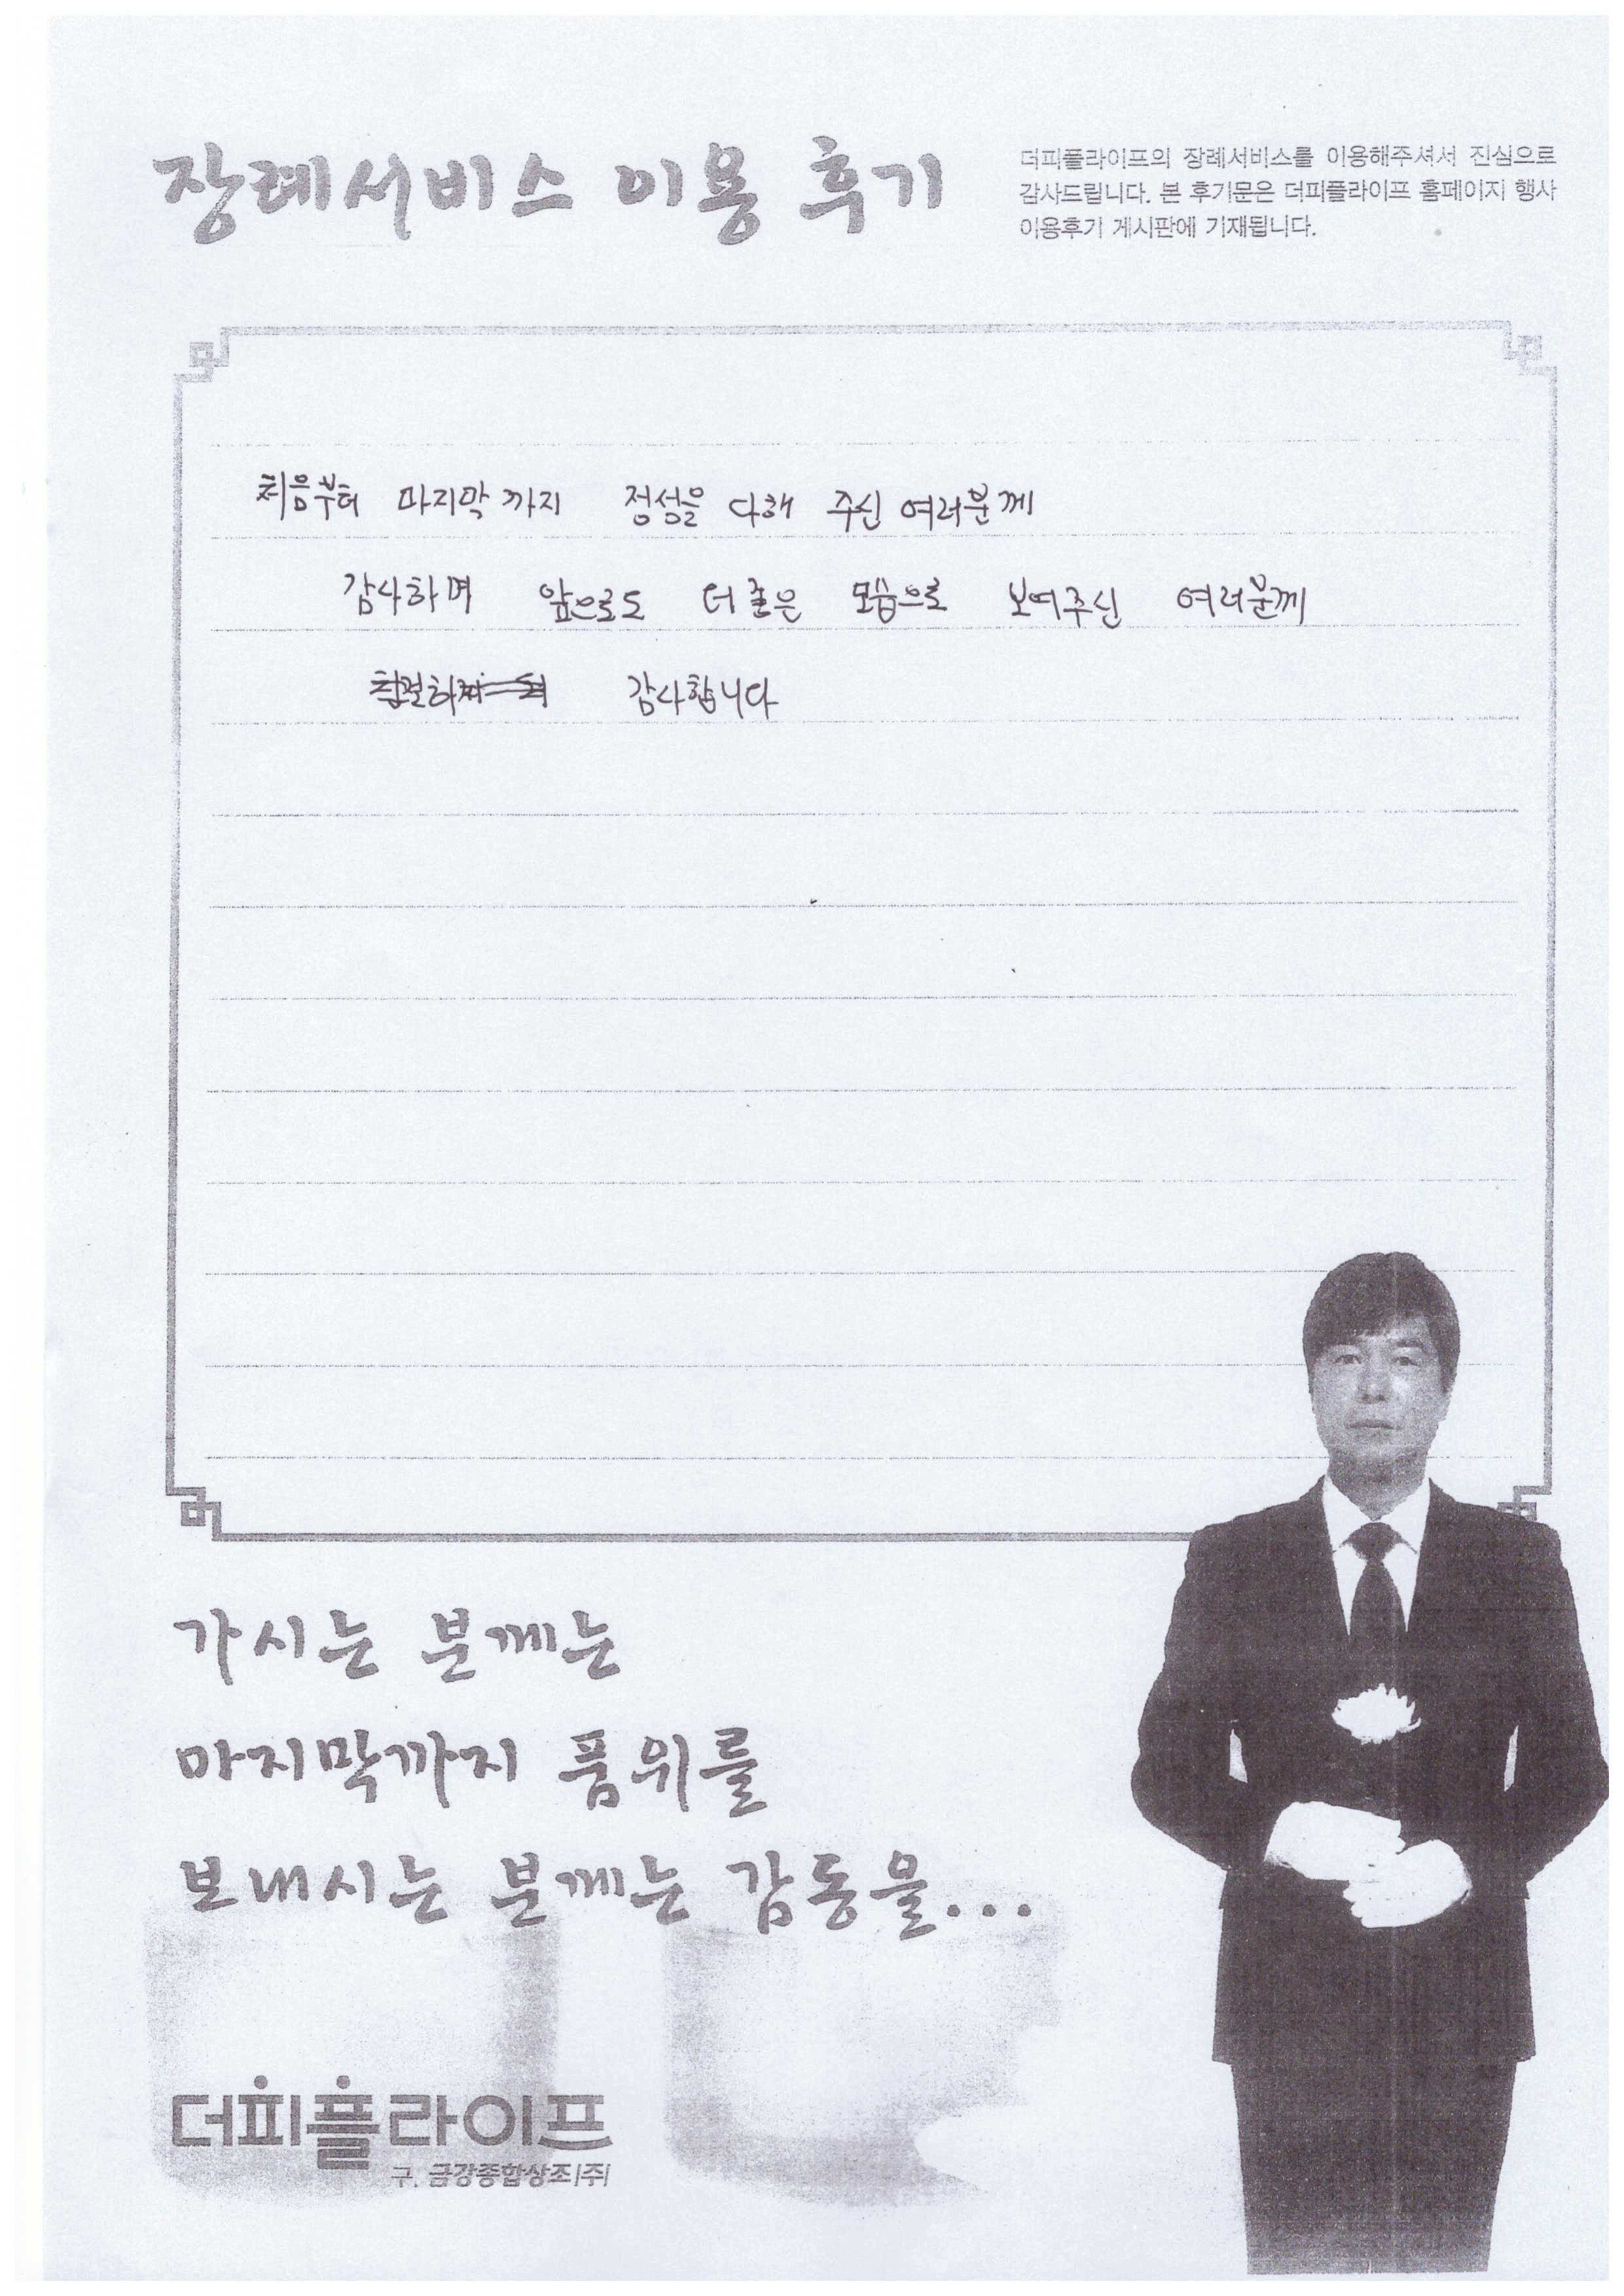 장례서비스 이용 후기
더피플라이프의 장례서비스를 이용해주셔서 진심으로
감사드립니다. 본 후기문은 더피플라이프 홈페이지 행사
이용후기 게시판에 기재됩니다.
처음부터 마지막 까지 정성을 다해 주신 여러분께
감사하며 앞으로도 더 좋은 모습으로 보여주신 여러분께
감사합니다
가시는 분께는
마지막까지 품위를
보내시는 분께는 감동을...
더피플라이프
구. 금강종합상조(주)